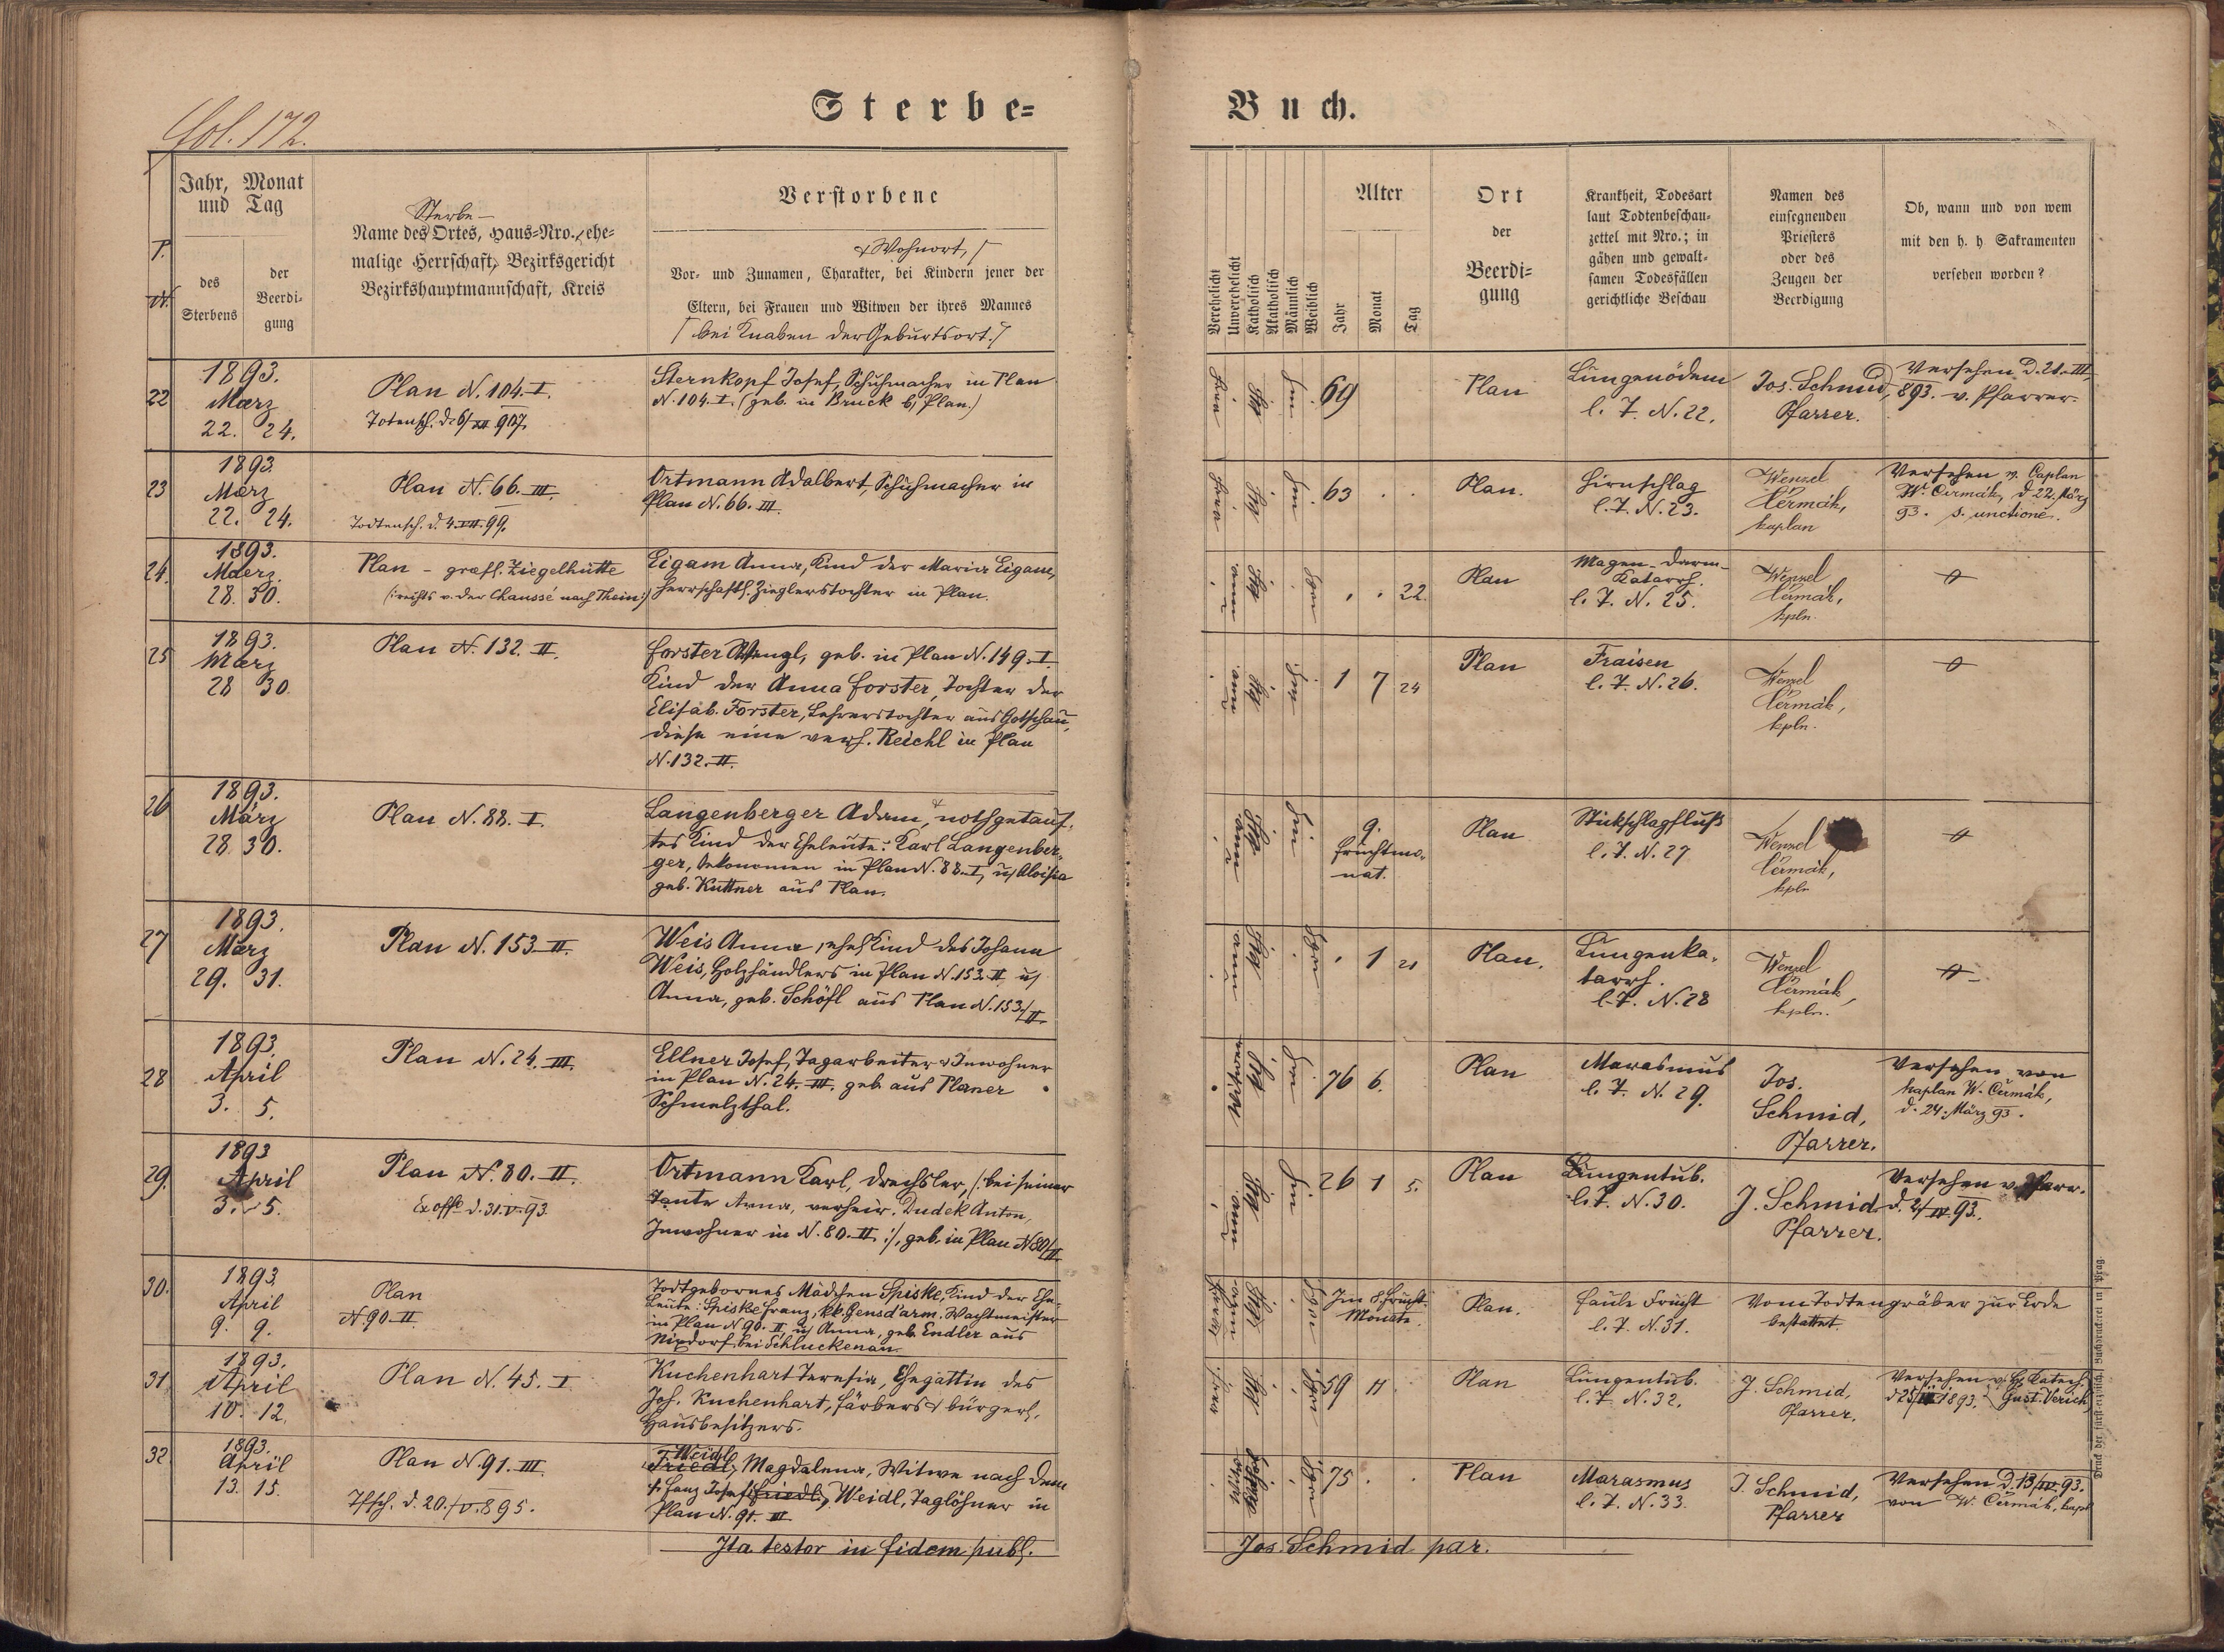 Sterbe=
Buch.
fol. 172.
P.
N.
Jahr, Monat
und Tag
des
Sterbens
der
Beerdi-
gung
Sterbe-
Name des Ortes, Haus-Nro., ehe-
malige Herrschaft, Bezirksgericht
Bezirkshauptmannschaft, Kreis
Verstorbene
Wohnort,
Vor- und Zunamen, Charakter, bei Kindern jener der
Eltern, bei Frauen und Witwen der ihres Mannes
/ bei Knaben der Geburtsort. /
Verehelicht
Unverehelicht
Katholisch
Akatholisch
Männlich
Weiblich
Alter
Jahr
Monat
Tag
Ort
der
Beerdi-
gung
Krankheit, Todesart
laut Todtenbeschau-
zettel mit Nro.; in
gähen und gewalt-
samen Todesfällen
gerichtliche Beschau
Namen des
einsegnenden
Priesters
oder des
Zeugen der
Beerdigung
Ob, wann und von wem
mit den h. h Sakramenten
versehen worden?
22
1893.
Maerz
22. 24.
Plan N. 104. I.
Totensch. d. 6/XII 907.
Sternkopf Josef, Schuhmacher in Plan
N. 104. I. (geb. in Bruck b/ Plan.)
69
Plan
Lungenödem
l. Z. N. 22.
Jos. Schmid,
Pfarrer.
Versehen d. 21. III.
893. v. Pfarrer.
23
1893.
Maerz
22. 24.
Plan N. 66. III.
Todtensch. d. 4. VII. 99.
Ortmann Adalbert, Schuhmacher in
Plan N. 66. III.
63 . .
Plan.
Hirnschlag
l. Z. N. 23.
Wenzel
Čermák,
kaplan
Versehen v. Caplan
W. Čermák, d 22. März
93. s. unctione.
24.
1893.
Maerz.
28. 30.
Plan - graefl. Ziegelhütte
(: rechts v. der Chaussé nach Thein :)
Eigam Anna, Kind der Maria Eigam,
herrschaftl. Zieglerstochter in Plan.
. . 22.
Plan
Magen-Darm-
Katarrh.
l. Z. N. 25.
Wenzel
Čermák,
kpln.
25
1893.
März
28 30.
Plan N. 132. II.
Forster Wenzl, geb. in Plan N. 149. I.
Kind der Anna Forster, Tochter der
Elisab. Forster, Lehrerstochter aus Gotschau,
diese eine verh. Reichl in Plan
N. 132. II.
1 7 24
Plan
Fraisen
l. Z. N. 26.
Wenzel
Čermák,
kpln.
26
1893.
März
28. 30.
Plan N. 88. I.
Langenberger Adam, nothgetauf-
tes Kind der Eheleute: Karl Langenber-
ger, Oekonomen in Plan N. 88. I, u/ Aloisia
geb. Kuttner aus Plan.
9.
Fruchtmo-
nat.
Plan
Stickschlagfluß
l. Z. N. 27
Wenzel
Čermák,
kpln
27
1893.
März
29. 31.
Plan N. 153. II.
Weis Anna, ehel Kind des Johann
Weis, Holzhändlers in Plan N. 153. II u/
Anna, geb. Schöfl aus Plan N. 153./II.
. 1 21
Plan.
Lungenka-
tarrh.
l. Z. N. 28
Wenzel
Čermák,
kpln.
28
1893.
April
3. 5.
Plan N. 24. III.
Ellner Josef, Tagarbeiter & Inwohner
in Plan N. 24. III. geb. aus Planer
Schmelzthal.
76 6.
Plan
Marasmus
l. Z. N. 29.
Jos.
Schmid,
Pfarrer.
Versehen von
kaplan W. Čermák,
d. 24. März 93.
29.
1893
April
3. 5.
Plan N. 80. II.
Ex offo d. 31. V. 93.
Ortmann Karl, Drechsler, /: bei seiner
Tante Anna, verheir. Dudek Anton,
Inwohner in N. 80. II. :/, geb. in Plan N 80/II.
26 1 5.
Plan
Lungentub.
l. Z. N. 30.
J. Schmid
Pfarrer.
Versehen v. Pfarr.
d. 2/IV. 93.
30.
1893.
April
9. 9.
Plan
N. 90. II.
Todtgebornes Mädchen Spiske, Kind der Ehe-
leute: Spiske Franz, kk. Gensd'arm. Wachtmeister
in Plan N 90. II, u/ Anna, geb. Endler aus
Nixdorf bei Schluckenau.
Im 8. Frucht-
Monate.
Plan.
Faule Frucht
l. Z. N. 31.
Vom Todtengräber zur Erde
bestattet.
31.
1893.
April
10. 12.
Plan N. 45. I.
Kuchenhart Teresia, Ehegattin des
Jos. Kuchenhart, Färbers & bürgerl.
Hausbesitzers.
59 11
Plan
Lungentub.
l. Z. N. 32.
J. Schmid,
Pfarrer.
Versehen v. H. Katech.
d 25/III 1893. Gust. Verich
32.
1893.
April
13. 15.
Plan N. 91. III.
Tfsch. d. 20./V. 895.
Weidl
Friedl, Magdalena, Witwe nach dem
Josef Friedl, Weidl, Taglöhner in
Plan N. 91. III.
75. . .
Plan
Marasmus
l. Z. N. 33.
J. Schmid,
Pfarrer
Versehen d. 13/IV. 93.
von W. Čermák, kapl
Ita testor in fidem publ.
Jos. Schmid par.
Druck der fürst-erzbisch. Buchdruckerei in Prag.